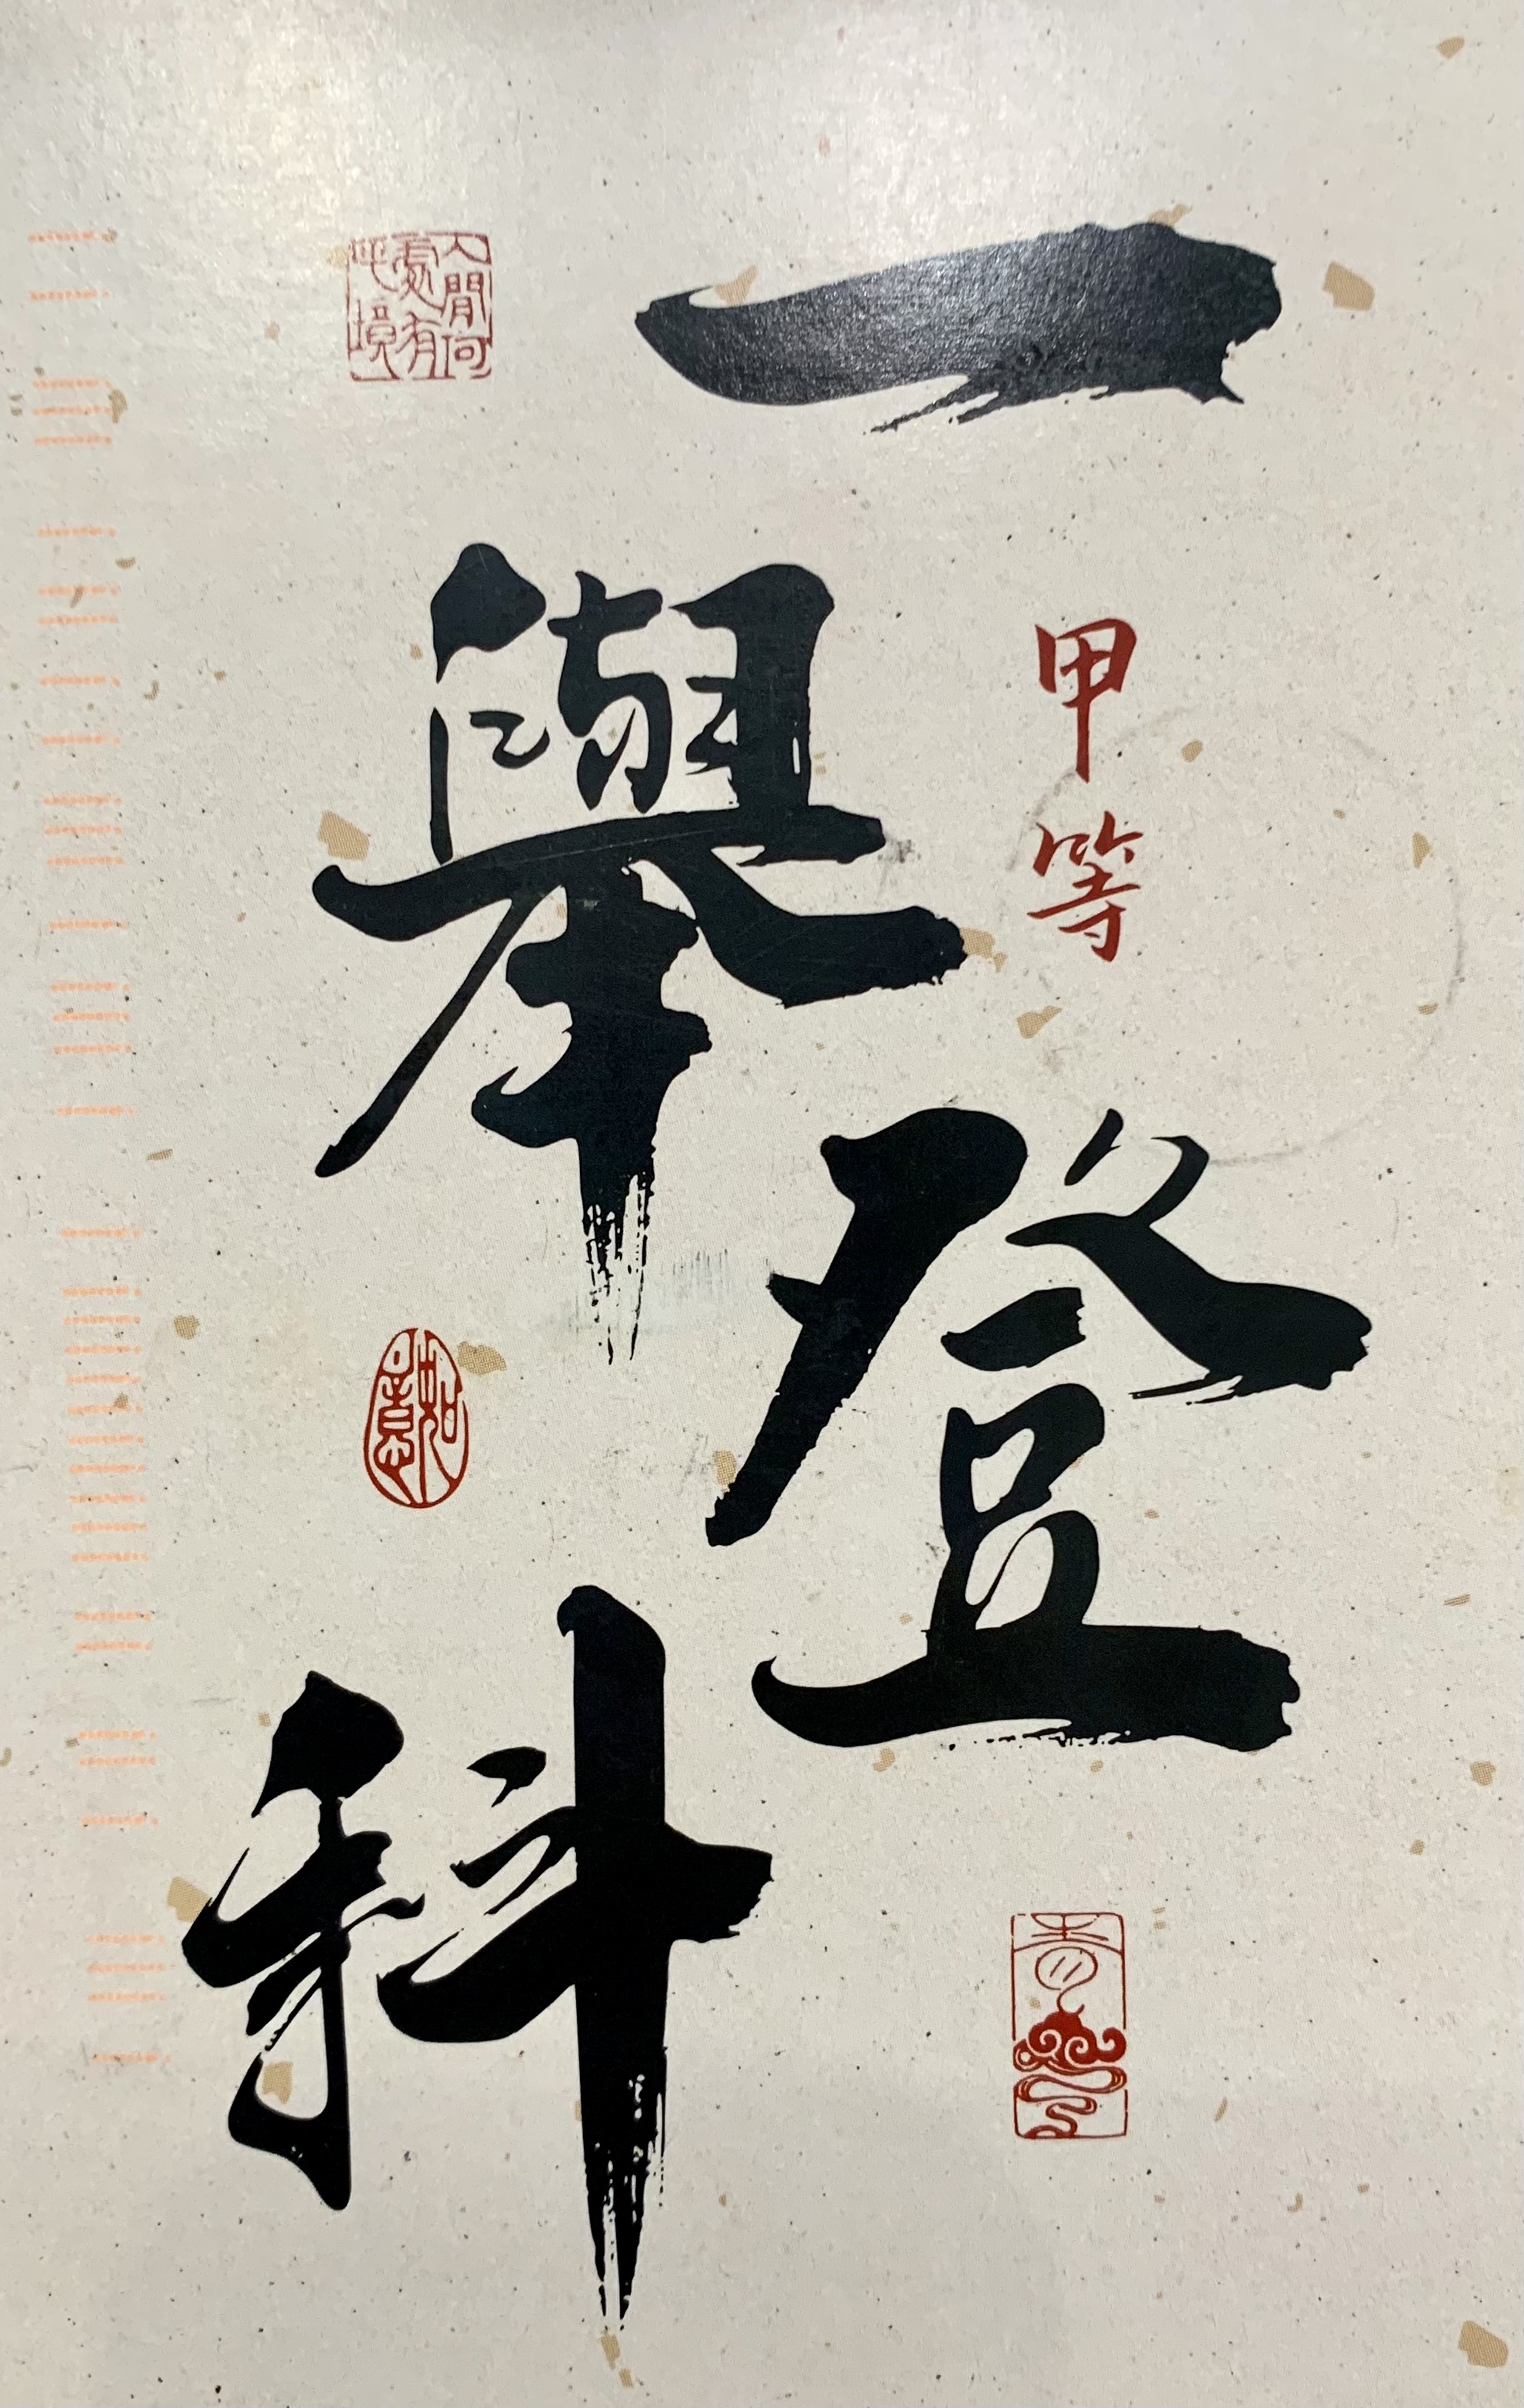 一
舉
甲等
登
科
人間何
處有
此境
如意